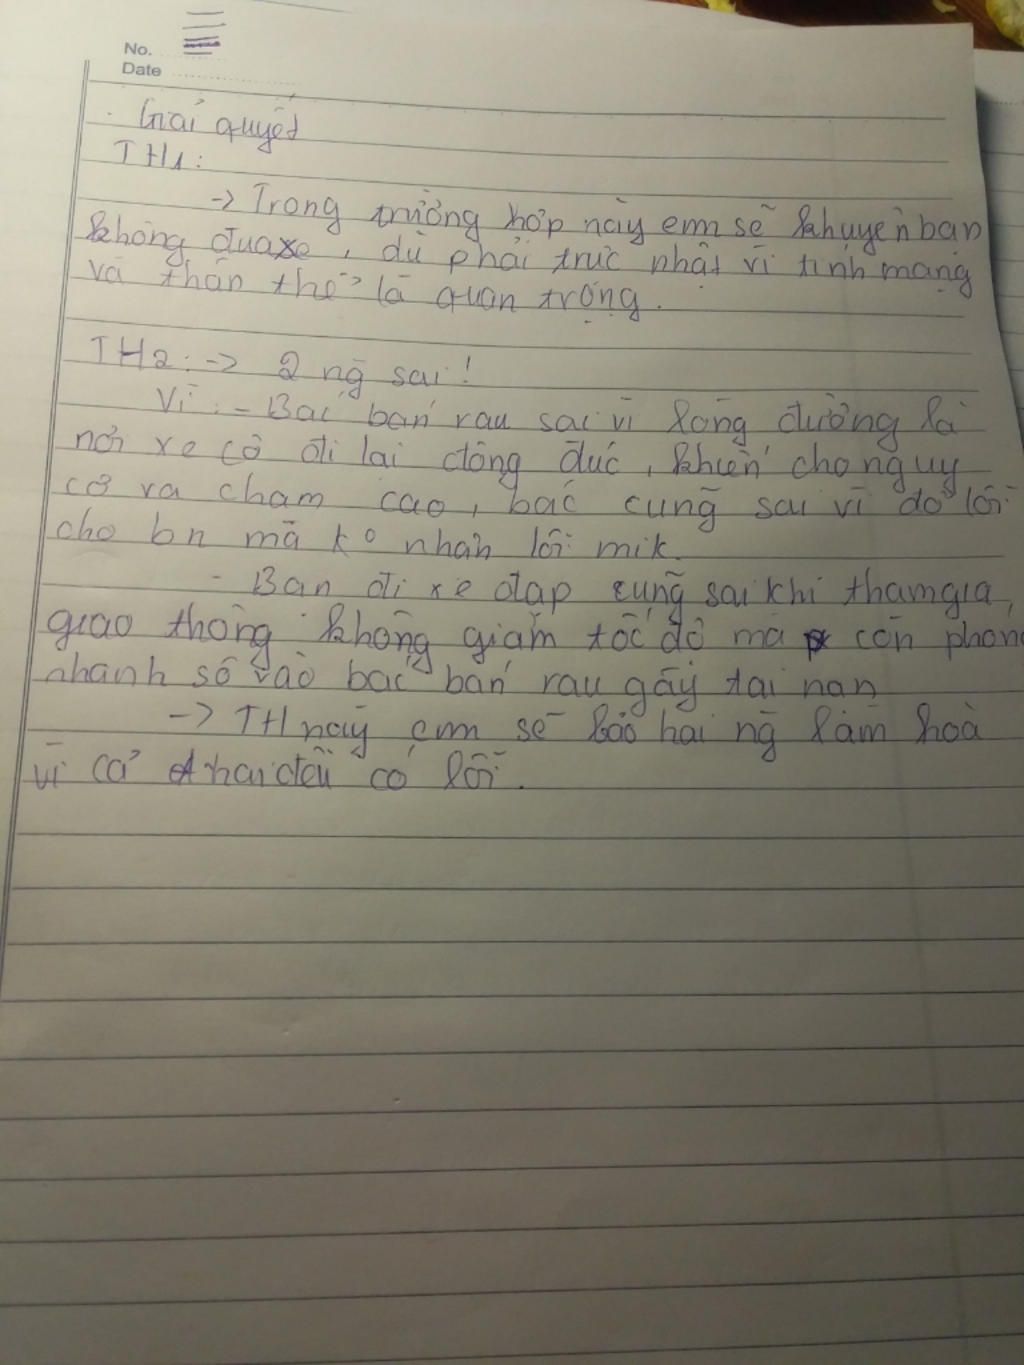 No.
Date
Giải quyết
TH1:
-> Trong trường hợp này em sẽ khuyên bạn
không đua xe, dù phải trực nhật vì tính mạng
và thân thể là quan trọng.
TH2: -> 2 ng sai!
Vì: - Bác bán rau sai vì lòng đường là
nơi xe cộ đi lại đông đúc, khiến cho nguy
cơ va chạm cao, bác cũng sai vì đổ lỗi
cho bn mà ko nhận lỗi mik.
- Bạn đi xe đạp cũng sai khi tham gia
giao thông không giảm tốc độ mà còn phóng
nhanh sô vào bác bán rau gây tai nạn
-> TH này em sẽ bảo hai ng làm hoà
vì cả hai đều có lỗi.